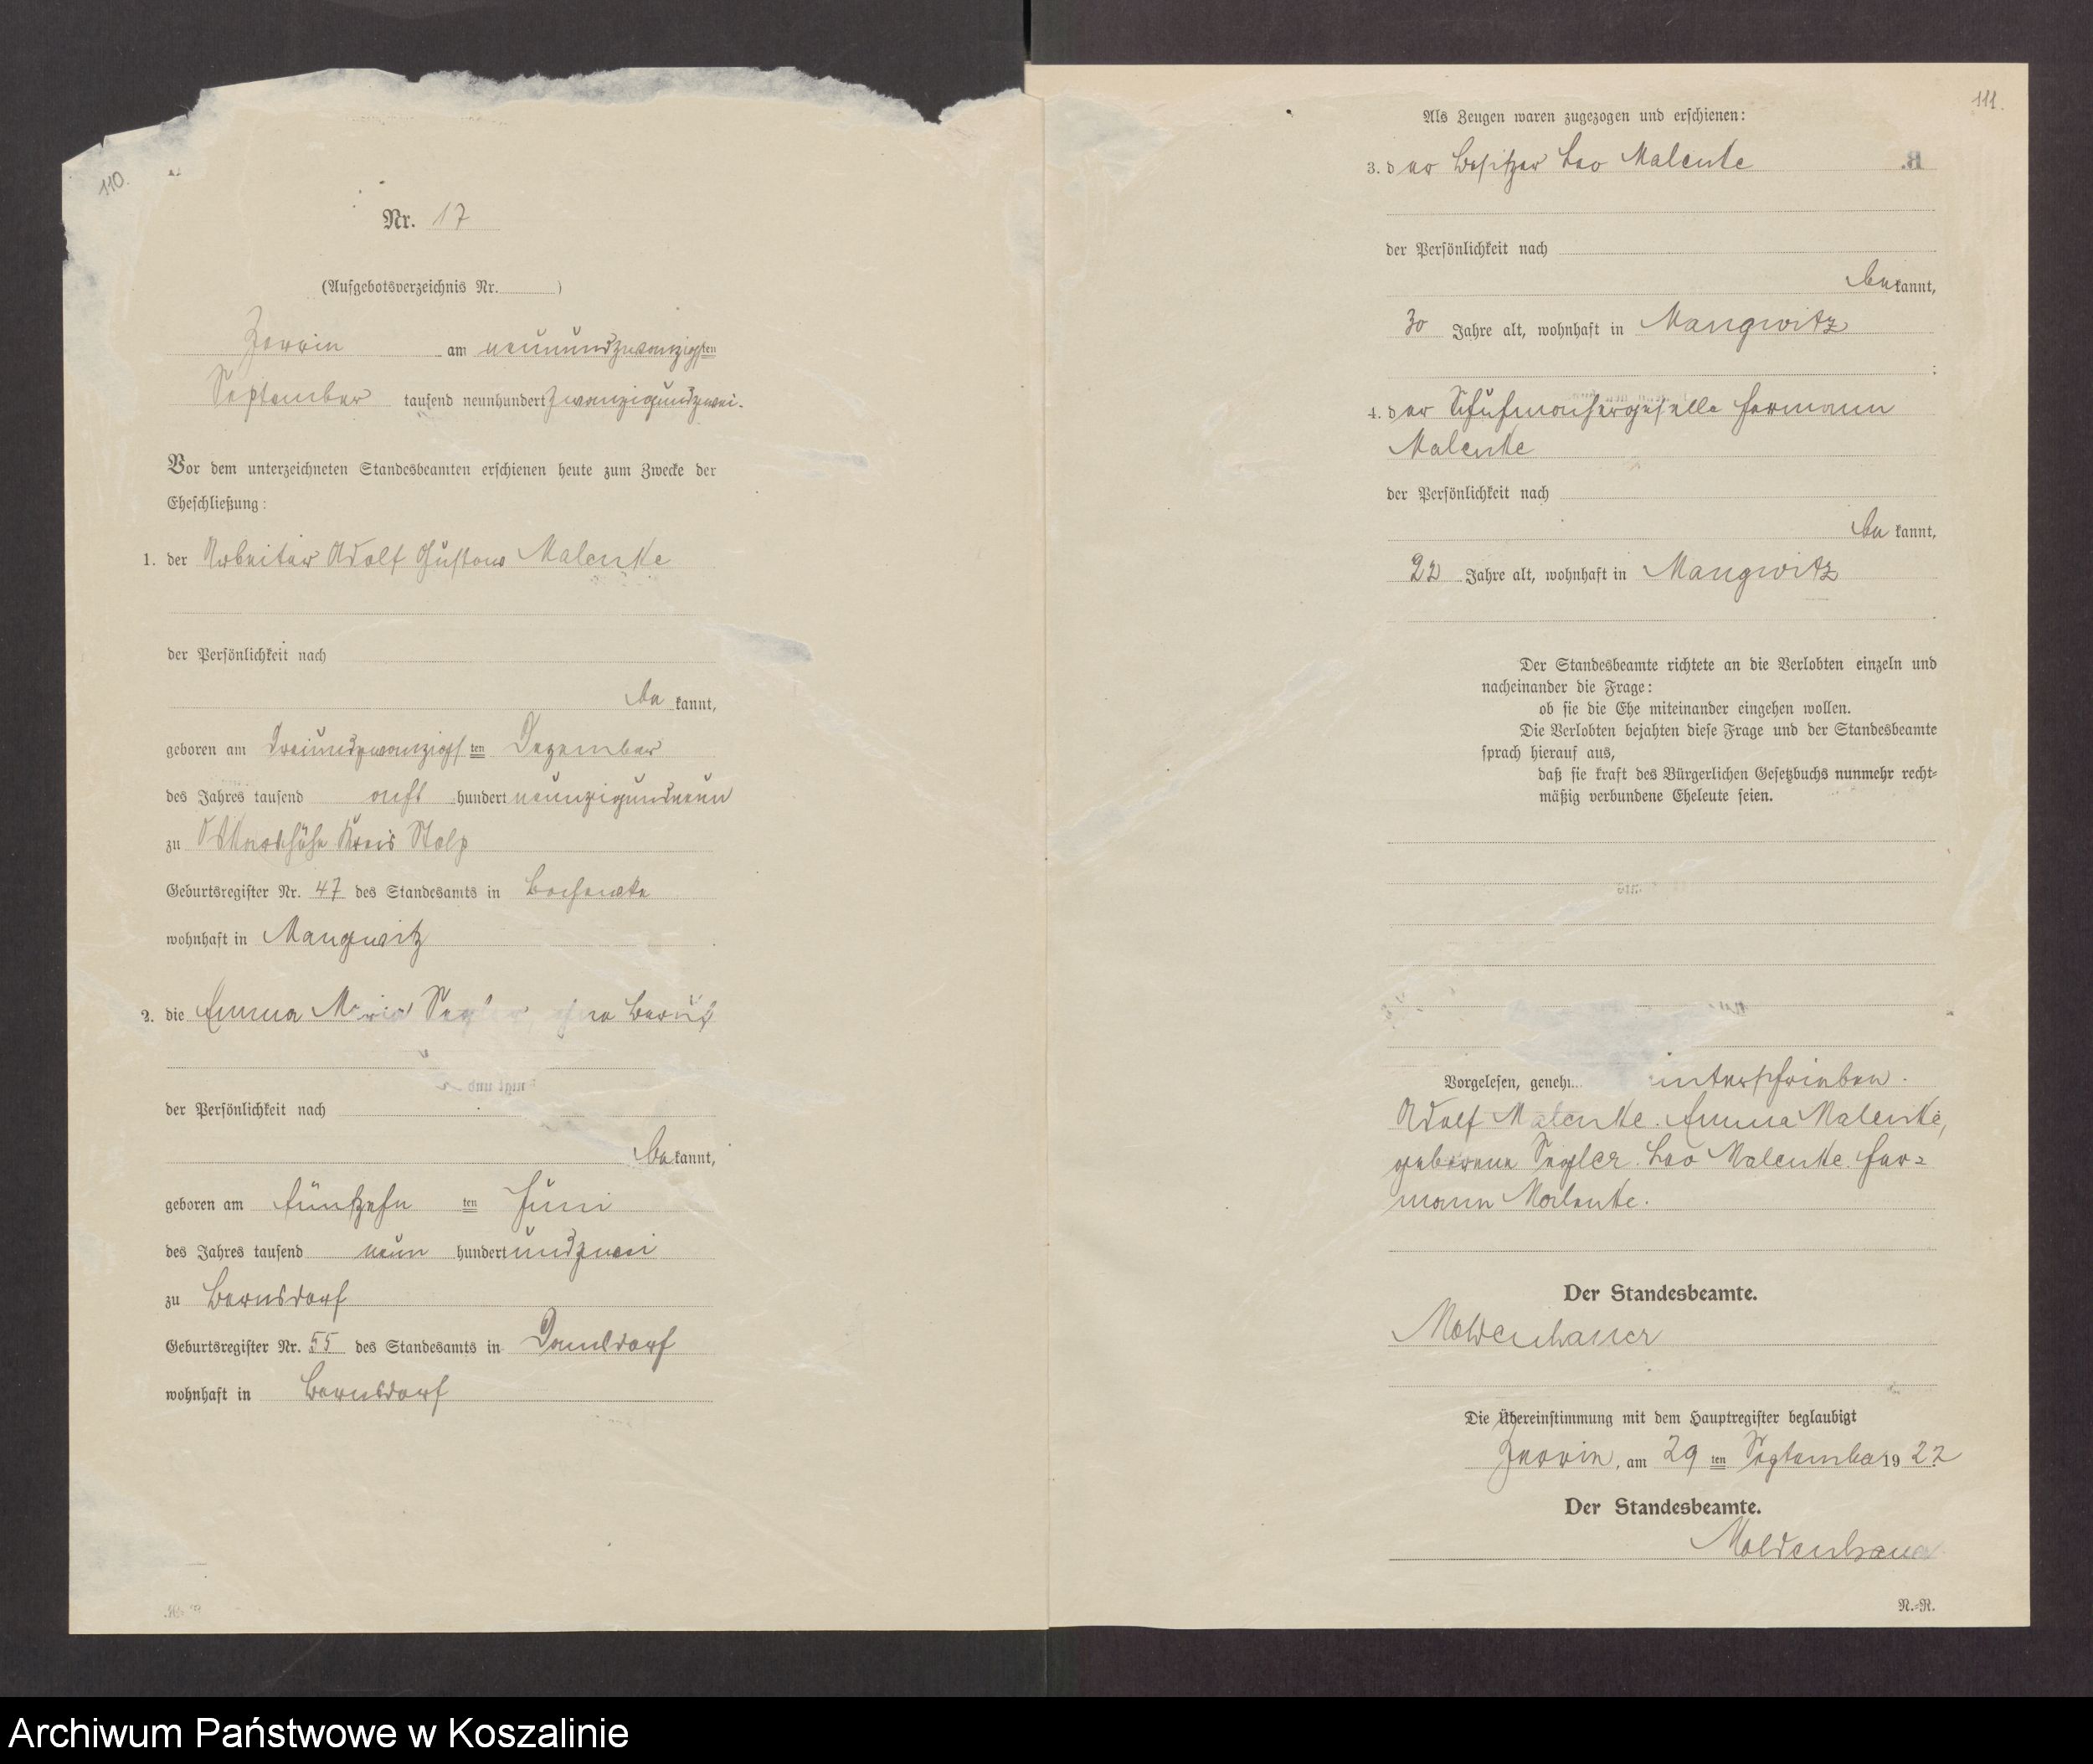 110.
Nr. 17
(Aufgebotsverzeichnis Nr. )
Zerrin am neunundzwanzigsten
September tausend neunhundert zwanzigundzwei.
Vor dem unterzeichneten Standesbeamten erschienen heute zum Zwecke der
Eheschließung:
1. der Arbeiter Adolf Gustav Malenke
der Persönlichkeit nach
be kannt,
geboren am dreiundzwanzigs ten Dezember
des Jahres tausend acht hundert neunzigundneun
zu Kreis Stolp
Geburtsregister Nr. 47 des Standesamts in
wohnhaft in Mangwitz
2. die Emma Maria Segler, ohne Beruf
der Persönlichkeit nach
be kannt,
geboren am fünfzehn ten Juni
des Jahres tausend neun hundert undzwei
zu Bernsdorf
Geburtsregister Nr. 55 des Standesamts in Damsdorf
wohnhaft in Bernsdorf
111.
Als Zeugen waren zugezogen und erschienen:
B.
3. der Besitzer Leo Malenke
der Persönlichkeit nach
be kannt,
30 Jahre alt, wohnhaft in Mangwitz
;
4. der Schuhmachergeselle Hermann
Malenke
der Persönlichkeit nach
be kannt,
22 Jahre alt, wohnhaft in Mangwitz
Der Standesbeamte richtete an die Verlobten einzeln und
nacheinander die Frage:
ob sie die Ehe miteinander eingehen wollen.
Die Verlobten bejahten diese Frage und der Standesbeamte
sprach hierauf aus,
daß sie kraft des Bürgerlichen Gesetzbuchs nunmehr recht-
mäßig verbundene Eheleute seien.
Vorgelesen, geneh unterschrieben.
Adolf Malenke. Emma Malenke,
geborene Segler. Leo Malenke. Her=
mann Malenke.
Der Standesbeamte.
Moldenhauer
Die Übereinstimmung mit dem Hauptregister beglaubigt
Zerrin, am 29 ten September 19 22
Der Standesbeamte.
Moldenhauer
N.-R.
Archiwum Państwowe w Koszalinie